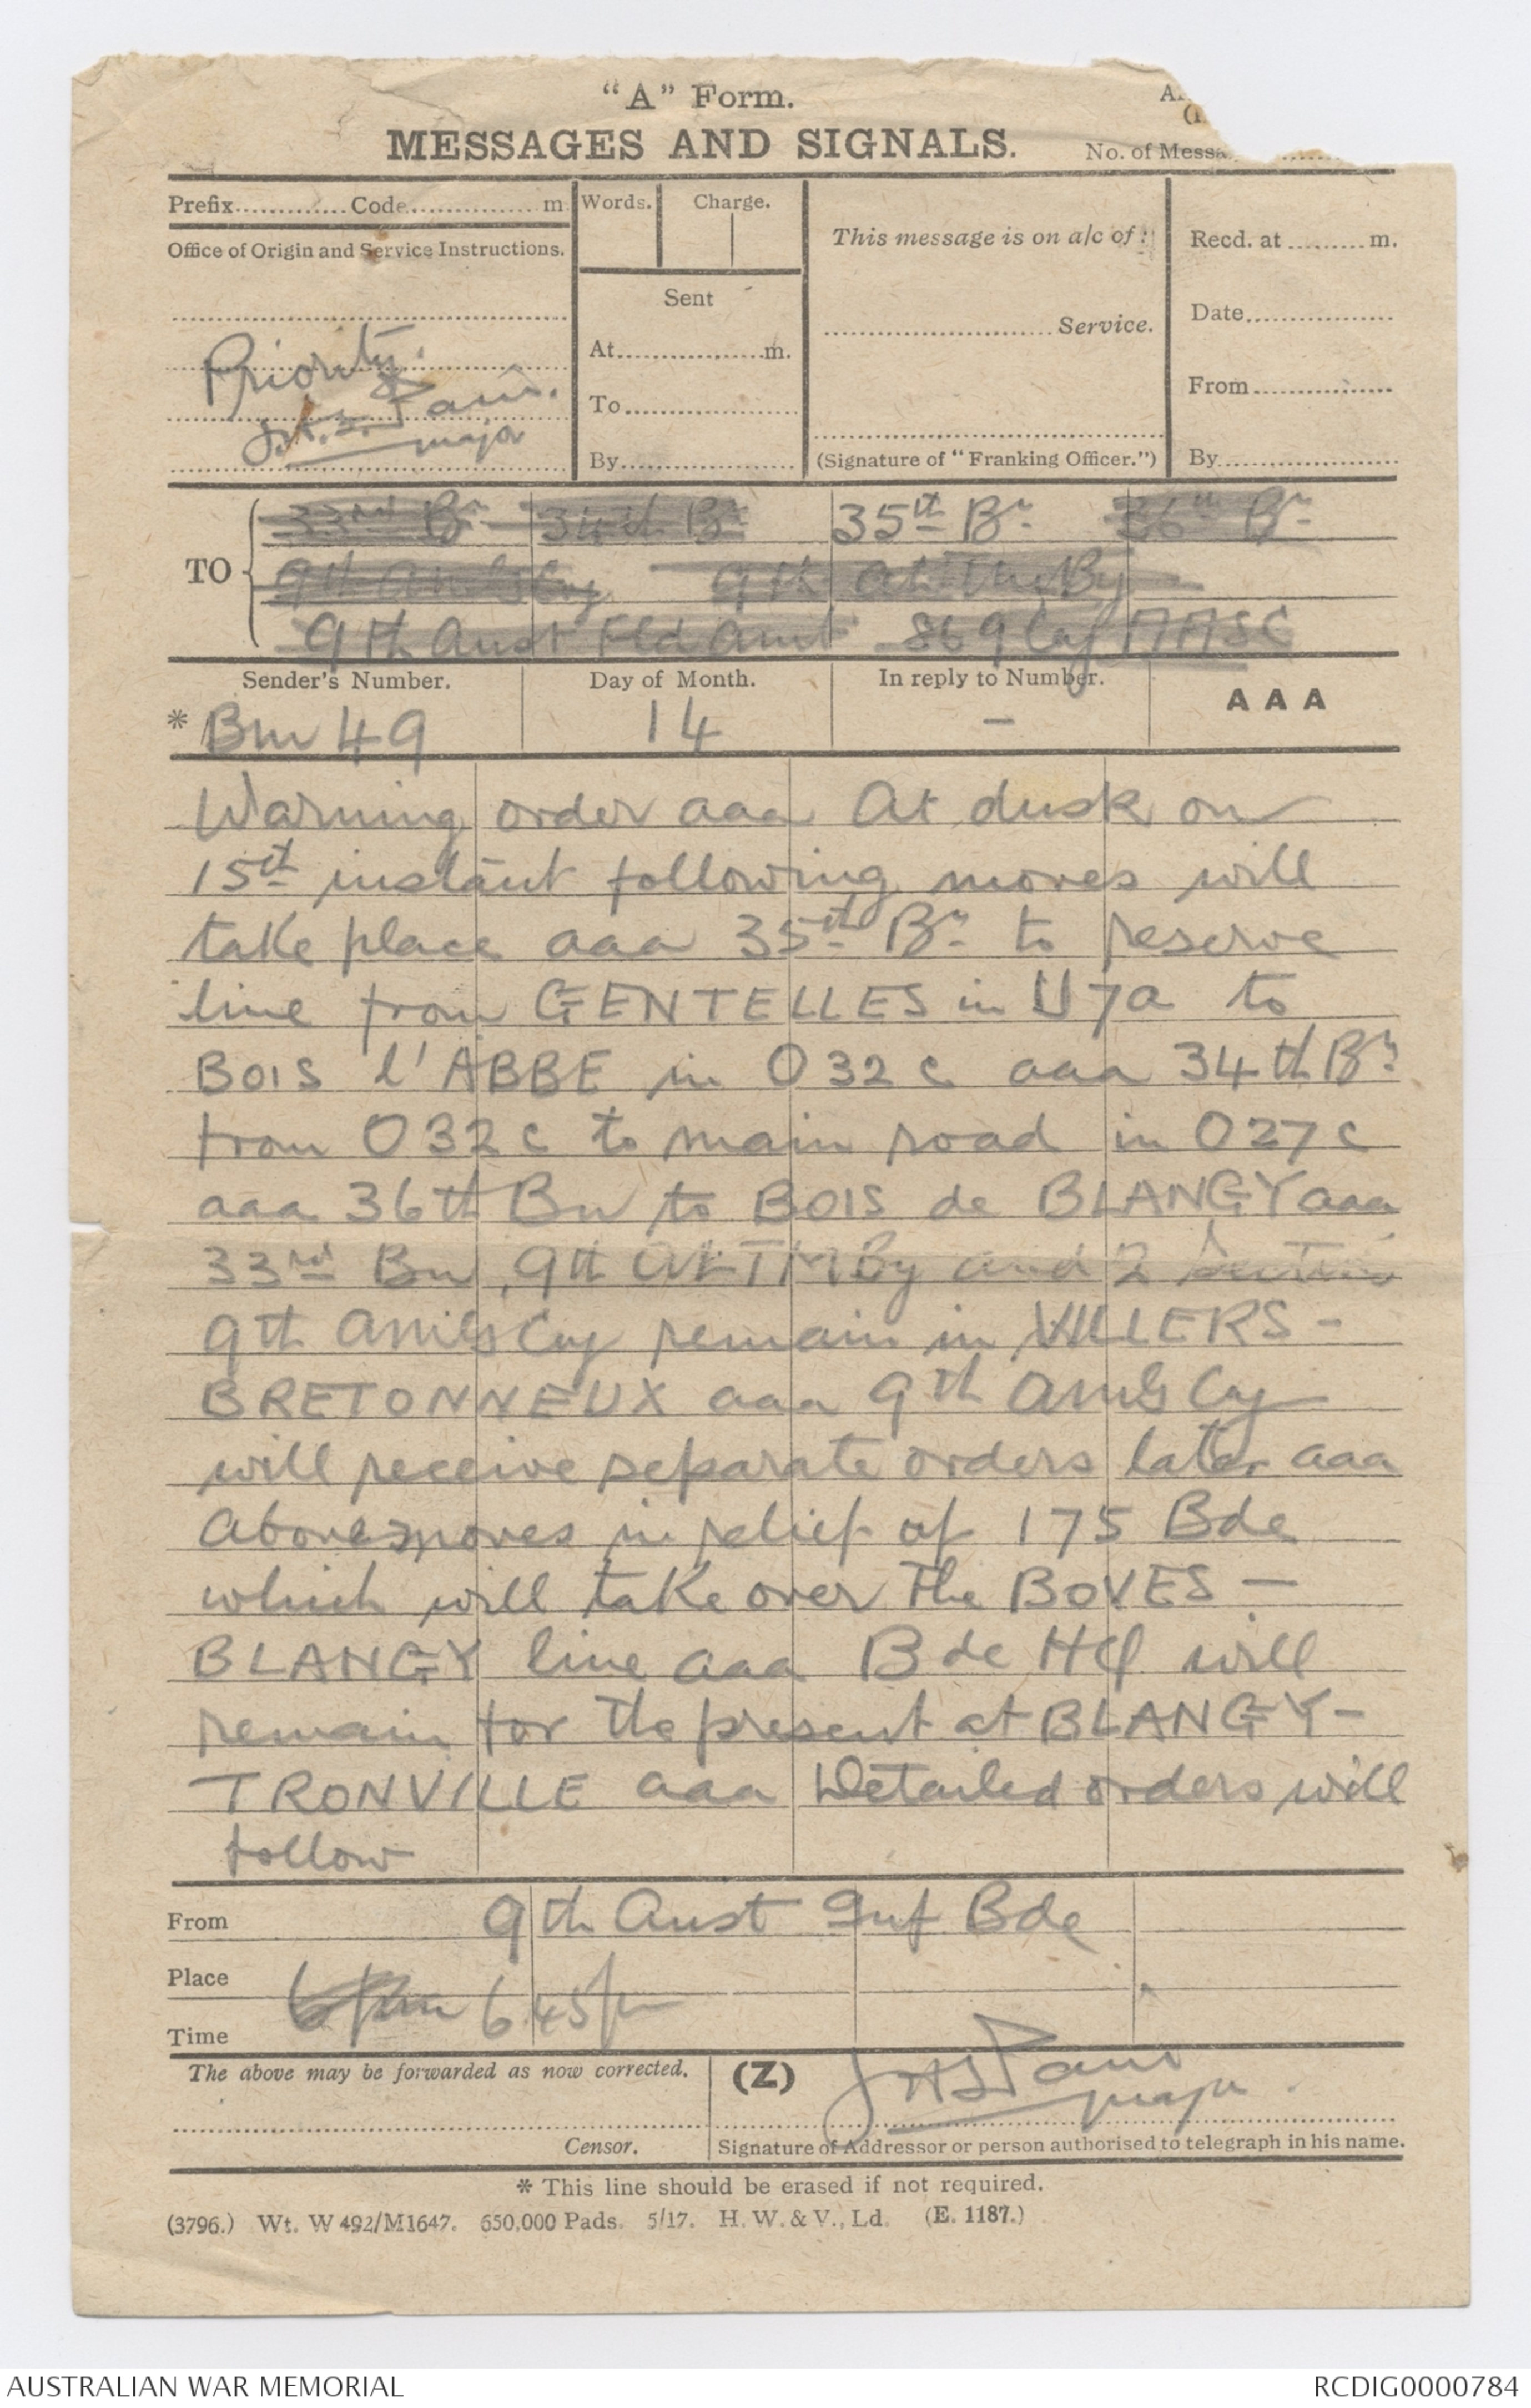 "A" Form.
MESSAGES AND SIGNALS.
No. of Messa
Prefix............. Code................ m
Words.
Charge.
This message is on a/c of:
Recd. at .......... m.
Office of Origin and Service Instructions.
Sent
Date.................
Priority.
At.................m.
........................... Service.
From.................
major
To....................
By....................
(Signature of "Franking Officer.")
By.....................
TO
33rd Bn 34th Bn 35th Bn 36th Bn
9th Aust Fld Amb 869 Coy AASC
Sender's Number.
Day of Month.
In reply to Number.
AAA
* Bm 49
14
-
Warning order aaa At dusk on
15th instant following moves will
take place aaa 35th Bn to reserve
line from GENTELLES in U7a to
BOIS l'ABBE in O32c aaa 34th Bn
from O32c to main road in O27c
aaa 36th Bn to BOIS de BLANGY aaa
33rd Bn, 9th ALTMBy and 2 section
9th AMG Coy remain in VILLERS-
BRETONNEUX aaa 9th AMG Coy
will receive separate orders later aaa
Above moves in relief of 175 Bde
which will take over the BOVES -
BLANGY line aaa Bde HQ will
remain for the present at BLANGY-
TRONVILLE aaa Detailed orders will
follow
From
9th Aust Inf Bde
Place
Time
6pm 6.45pm
The above may be forwarded as now corrected.
(Z)
major
Censor.
Signature of Addressor or person authorised to telegraph in his name.
* This line should be erased if not required.
(3796.) Wt. W492/M1647. 650,000 Pads. 5/17. H. W. & V., Ld. (E. 1187.)
AUSTRALIAN WAR MEMORIAL
RCDIG0000784